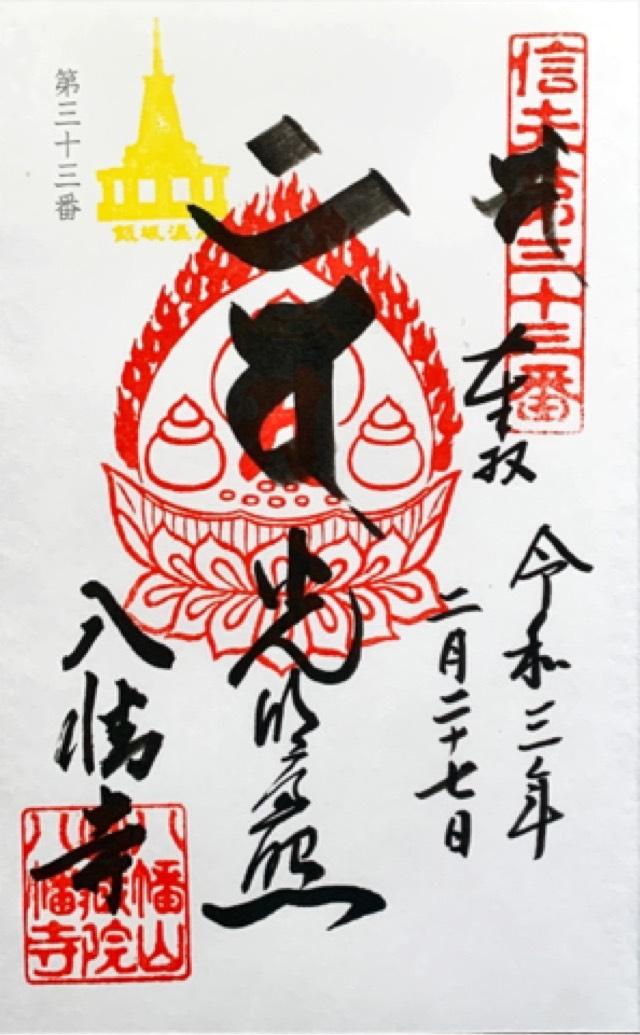 信夫第三十三番
奉
拝
令和三年
二月二十七日
光明遍照
八幡寺
八幡山
八幡寺
第三十三番
飯坂温泉